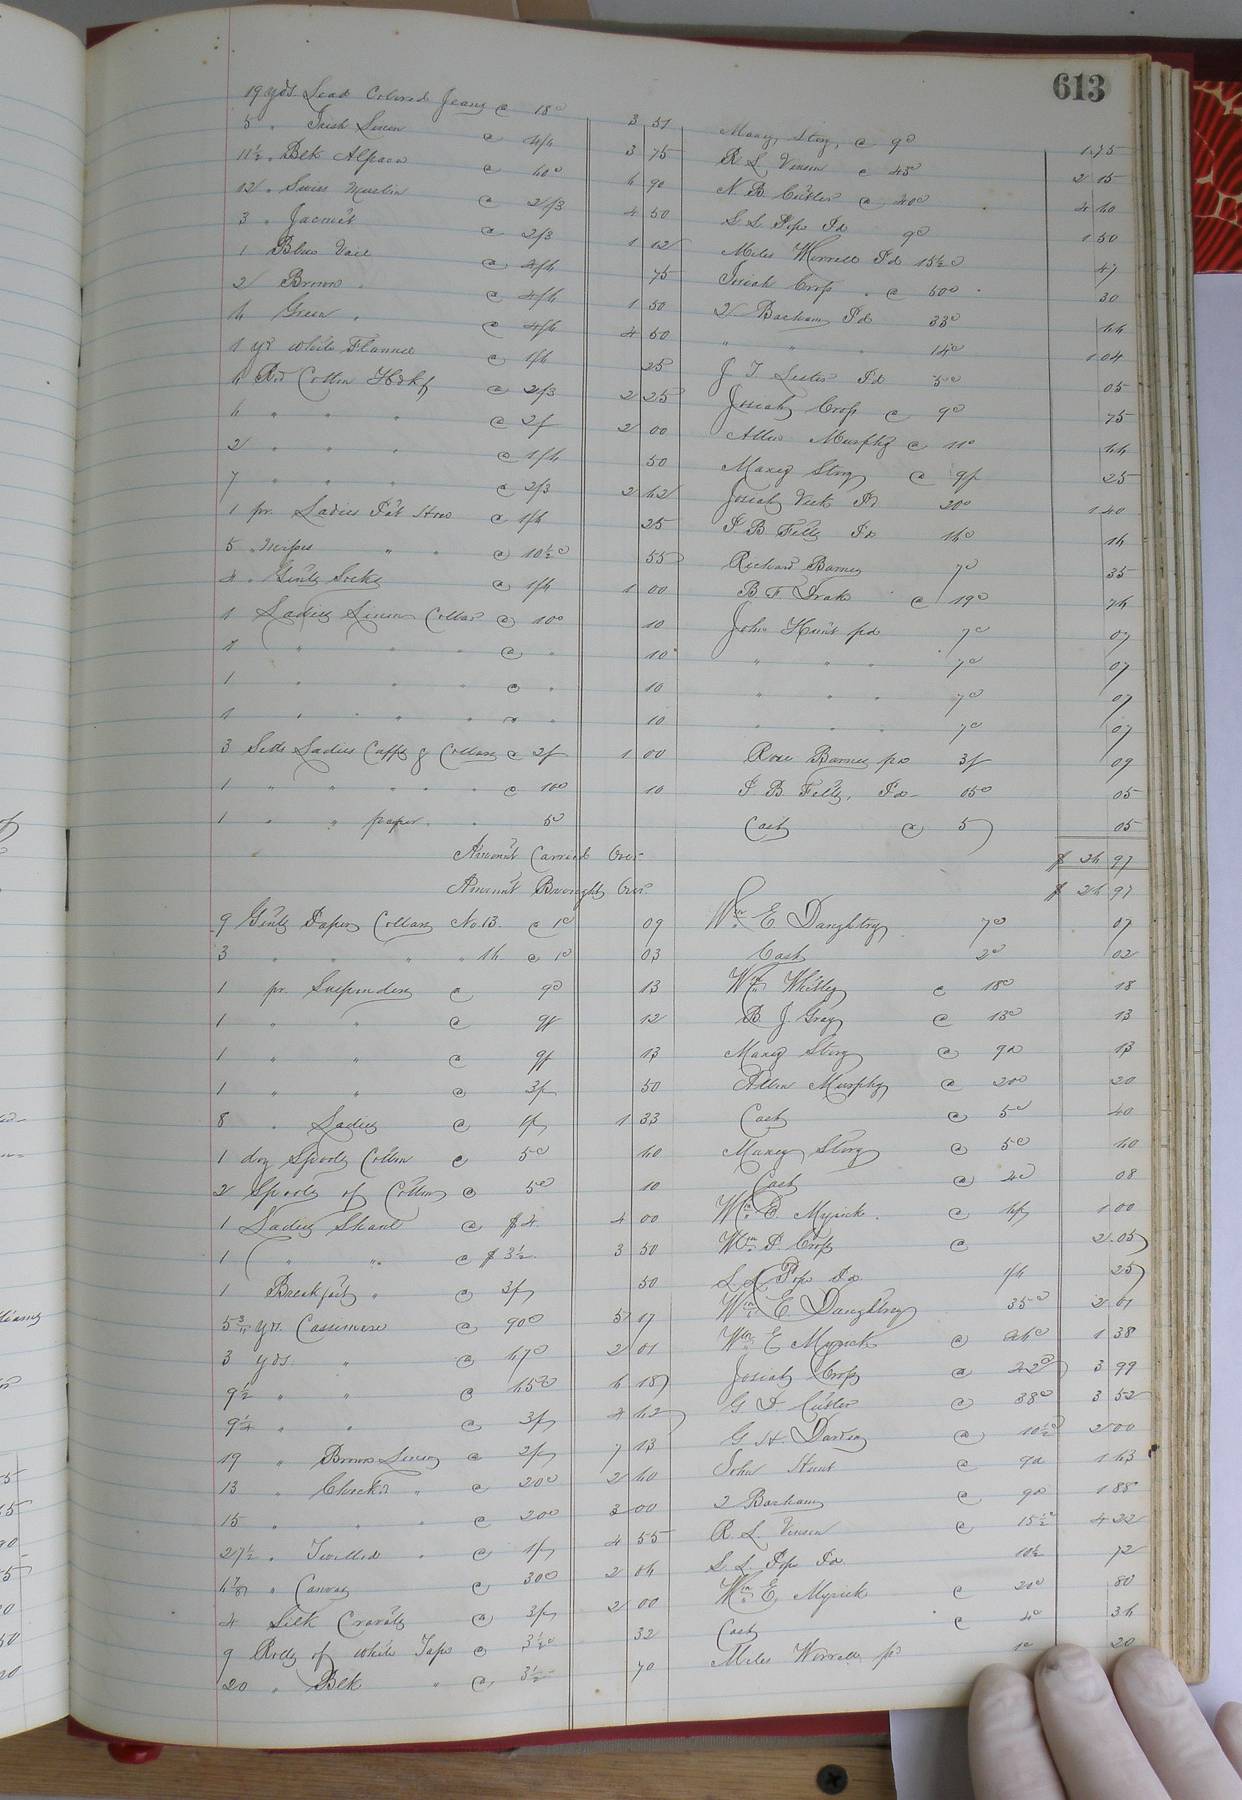 613
19 yds. Lead Colored Jeans @ 18c 3 51 Maney Story, @ 9c 1.75
5 " Irish Linen @ 4/6 3 75 R. L. Vinson @ 43c 2 15
11½ " Blk Alpaca @ 60c 6 90 N. B. Cutler @ 40c 4 60
12 " Swiss Muslin @ 2/3 4 50 S. S. Pope Pd 1 50
3 " Jaconet @ 2/3 1 12 Miles Worrell Pd 15½c 47
1 Blue Vail @ 4/6 75 Josiah Crop @ 30
2 Brown " @ 4/6 1 50 2 Barham Pd 33c 66
6 Green " @ 4/6 4 50 " " " 1 04
1 yd White Flannel @ 1/6 25 J. T. Lester Pd 5c 05
6 Red Cotton Hdkf @ 2/3 2 25 Josiah Crop @ 75
6 " " " @ 2/ 2 00 Allen Murphy @ 11c 66
2 " " " @ 1/6 50 Maney Story @ 25
7 " " " @ 2/3 2 62 Josiah Vick Pd 20c 1 40
1 pr. Ladies Hose @ 1/6 25 J B. Felts Pd 16c 16
5 " Misses " " @ 10½c 55 Richard Barnes 7c 35
4 " Gents Socks @ 1/6 1 00 B. F. Drake @ 19c 76
1 Ladies Linen Collar @ 10c 10 John Hunt pd 7c 07
1 " " " @ " 10 " " " 7c 07
1 " " " @ " 10 " " " 7c 07
1 " " " @ " 10 " " " 7c 07
3 Setts Ladies Cuffs & Collars @ 2/ 1 00 Barnes pd 09
1 " " " " " @ 10c 10 J B. Felts, Pd 05c 05
1 " " paper " 5c Cash @ 5 05
Amount Carried Over $ 26 97
Amount Brought Over $ 26 97
9 Gents Paper Collars No. 13. @ 1c 09 Wm. E. Daughtrey 7c 07
3 " " " " 16 @ 1c 03 Cash 2c 02
1 pr. Suspenders @ 13 Wm. Whitley @ 18c 18
1 " " @ 9/ 12 B. J. Gray @ 13c 13
1 " " @ 9/ 13 Maney Story @ 13
1 " " @ 3/ 50 Allen Murphy @ 20c 20
8 " Ladies @ 1/ 1 33 Cash @ 5c 40
1 doz Spools Cotton @ 5c 60 Maney Story @ 5c 60
2 Spools of Cotton @ 5c 10 Cash @ 4c 08
1 Ladies Shawl @ $4. 4 00 Wm. E. Myrick @ 6/ 1 00
1 " " @ $3½ 3 50 Wm. P. Crop @ 2.05
1 Breakfast " @ 3/ 50 S. S. Pope Pd 1/6 25
yds. Cassimere @ 90c 5 17 Wm. E. Daughtrey 35c 2 01
3 yds. " @ 67c 2 01 Wm. E. Myrick @ 46c 1 38
9½ " " @ 65c 6 18 Josiah Crop @ 42c 3 99
9¼ " " @ 3/ 4 62 G. D. Cutler @ 38c 3 52
19 " Brown Linen @ 2/ 7 13 G. H. Darden @ 10½c 2 00
13 " Check'd " @ 20c 2 60 John Hunt @ 1 43
15 " " " @ 20c 3 00 2 Barham @ 1 88
27½ " Twilled " @ 1/ 4 55 R. L. Vinson @ 15½c 4 22
" Canvas @ 30c 2 06 S. S. Pope Pd 10½ 72
4 Silk Cravats @ 3/ 2 00 Wm. E. Myrick @ 20c 80
9 Rolls of White Tape @ 3½c 32 Cash @ 4c 36
20 " Blk " @ 3½ 70 Miles Worrell pd 1c 20